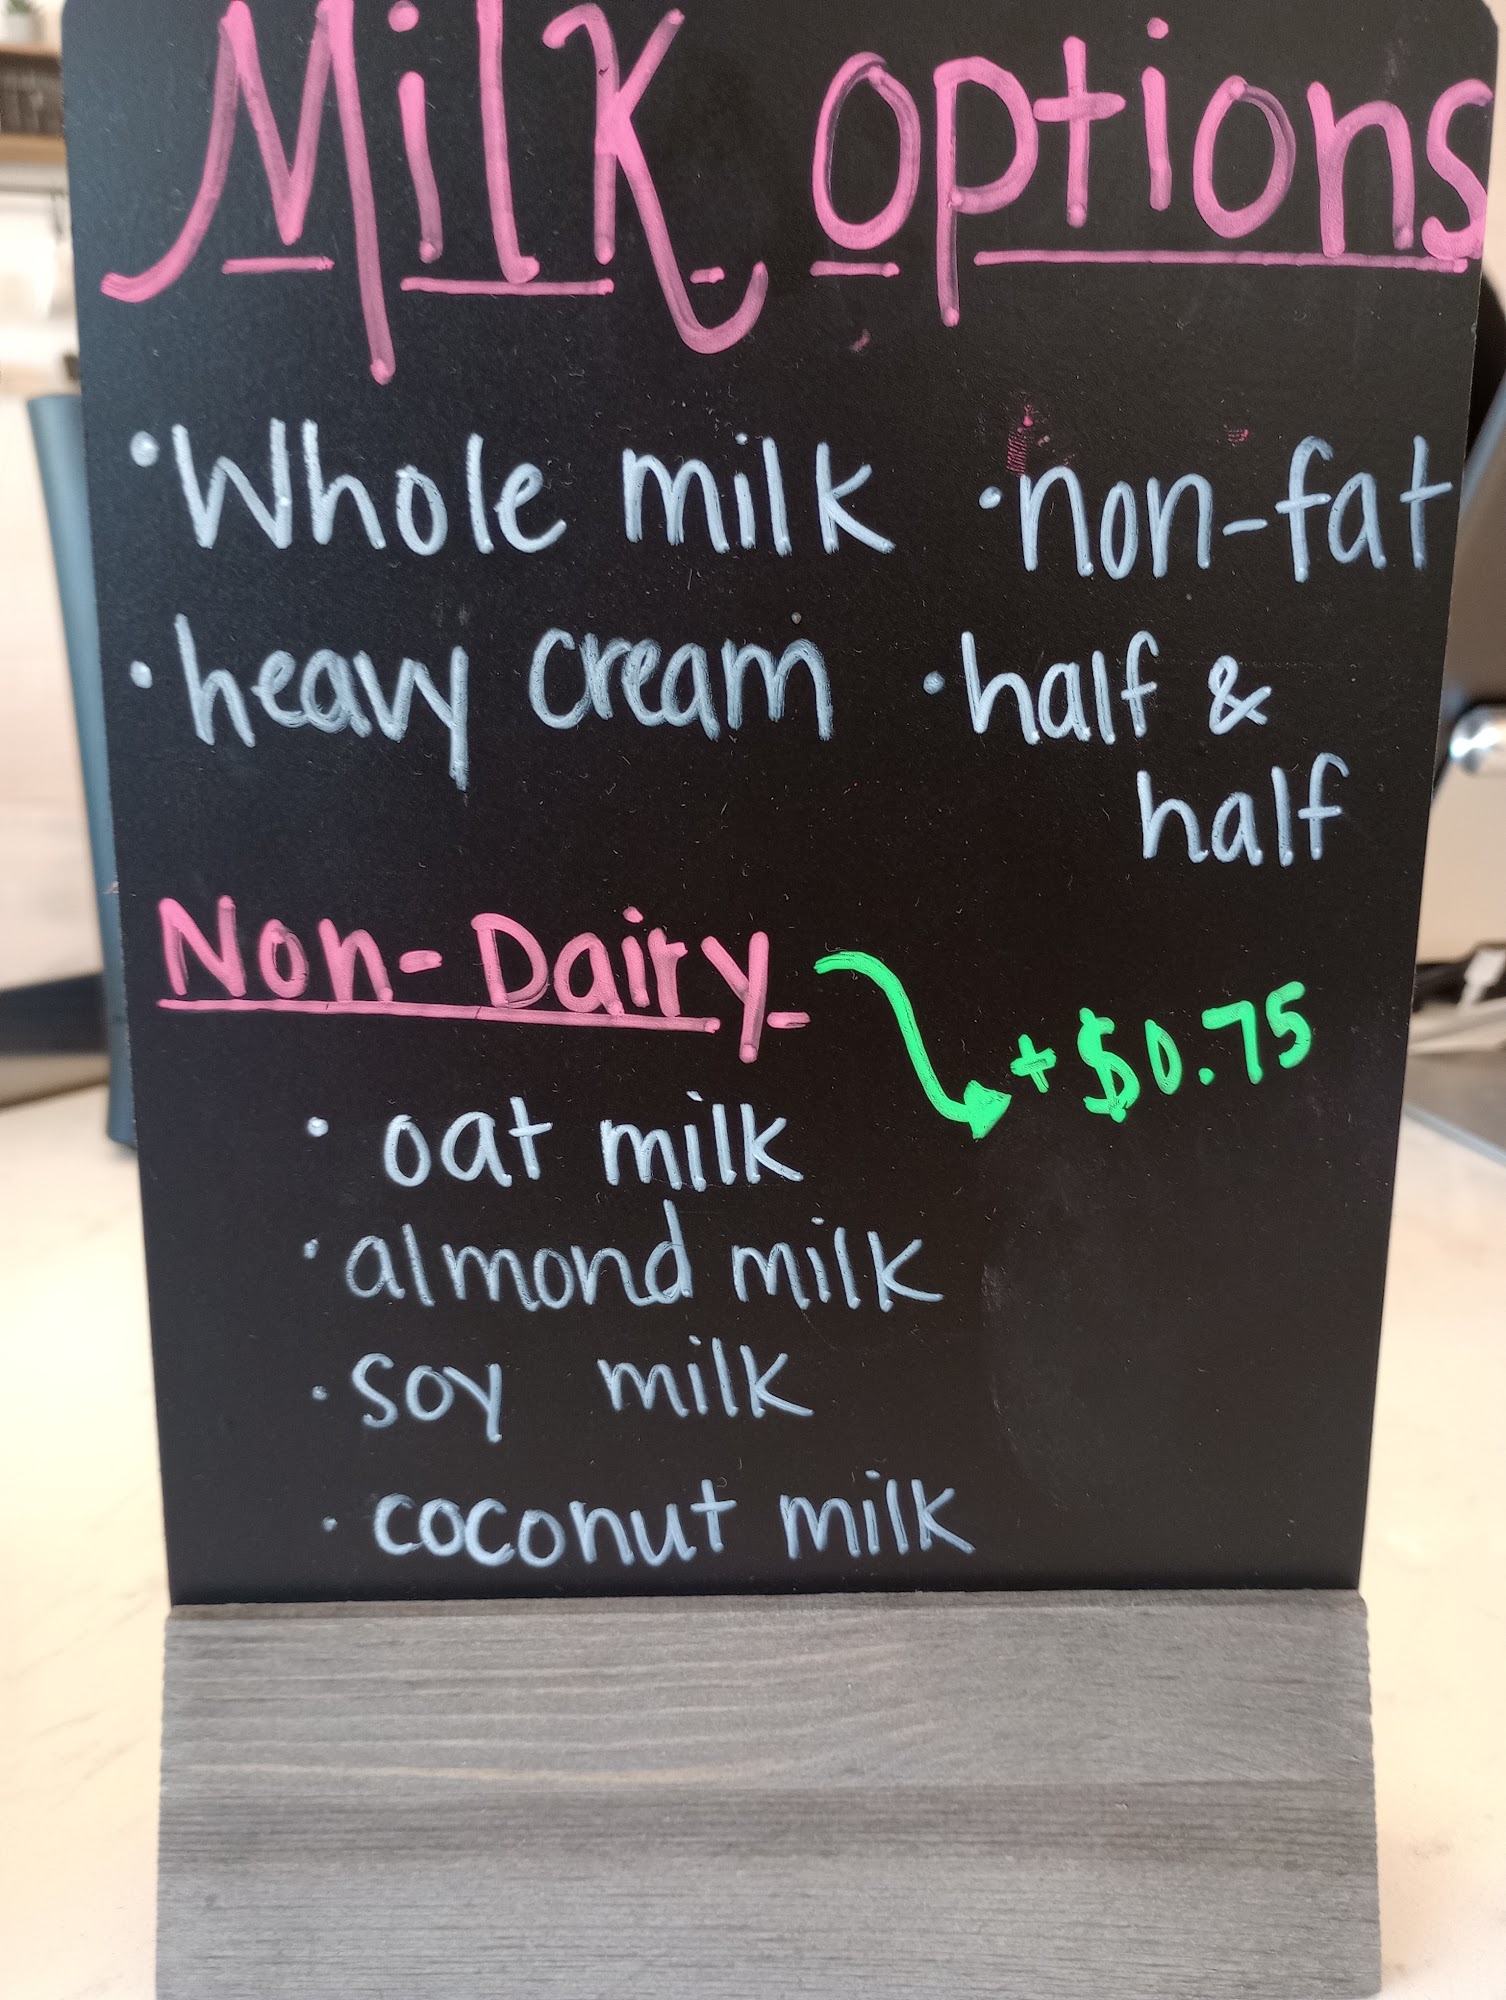 Milk options
• Whole milk • non-fat
• heavy cream • half &
half
Non-Dairy
+ $0.75
• oat milk
• almond milk
• soy milk
• coconut milk